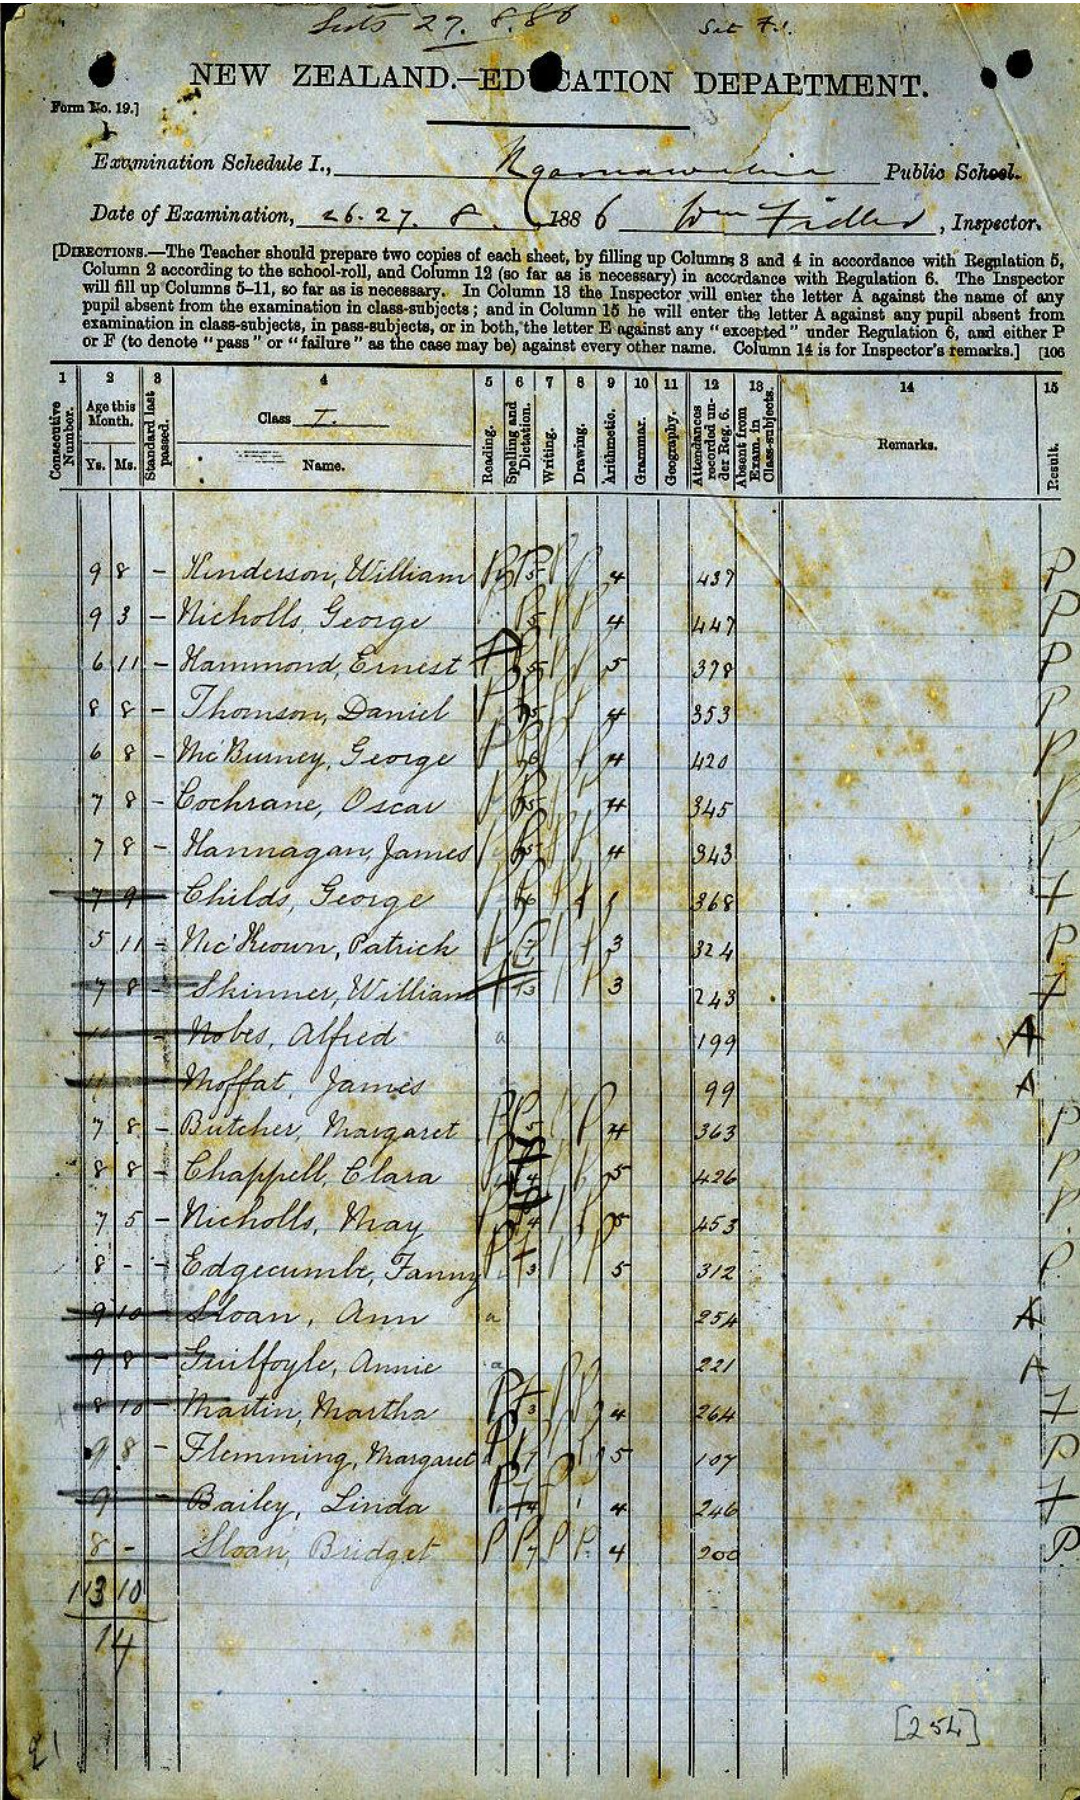 27. 8. 86
Set 71.
NEW ZEALAND.—EDUCATION DEPARTMENT.
Form No. 19.]
Examination Schedule I., Public School.
Date of Examination, 26. 27. 8. 1886 Wm Fidler, Inspector.
[DIRECTIONS.—The Teacher should prepare two copies of each sheet, by filling up Columns 3 and 4 in accordance with Regulation 5,
Column 2 according to the school-roll, and Column 12 (so far as is necessary) in accordance with Regulation 6. The Inspector
will fill up Columns 5–11, so far as is necessary. In Column 13 the Inspector will enter the letter A against the name of any
pupil absent from the examination in class-subjects; and in Column 15 he will enter the letter A against any pupil absent from
examination in class-subjects, in pass-subjects, or in both, the letter E against any "excepted" under Regulation 6, and either P
or F (to denote "pass" or "failure" as the case may be) against every other name. Column 14 is for Inspector's remarks.] [106
1 2 3 4 5 6 7 8 9 10 11 12 13 14 15
Consecutive Number. Age this Month. Ys. Ms. Standard last passed. Class I. Name. Reading. Spelling and Dictation. Writing. Drawing. Arithmetic. Grammar. Geography. Attendances recorded under Reg. 6. Absent from Exam. in Class-subjects. Remarks. Result.
9 8 – Henderson, William P 5 P P 4 437 P
9 3 – Nicholls, George 5 P P 4 447 P
6 11 – Hammond, Ernest 5 5 378 P
8 8 – Thomson, Daniel 5 4 353 P
6 8 – McBurney, George 6 4 420 P
7 8 – Cochrane, Oscar 5 4 345 P
7 8 – Hannagan, James 5 4 343 P
7 9 – Childs, George 6 1 368 F
5 11 – McKeown, Patrick 7 3 324 P
7 8 – Skinner, William 3 3 243 F
11 – Nobes, Alfred a 199 A
11 Moffat, James 99 A
7 8 – Butcher, Margaret P P 5 P 4 363 P
8 8 – Chappell, Clara 4 5 426 P
7 5 – Nicholls, May 4 5 453 P
8 - – Edgecumbe, Fanny P F 3 5 312 P
9 10 – Sloan, Ann a 254 A
9 8 – Guilfoyle, Annie a 221 A
8 10 – Martin, Martha P F 3 P P 4 264 F
9 8 – Flemming, Margaret 7 5 107 P
9 – Bailey, Linda F 4 4 246 F
8 - Sloan, Bridget P P 7 P P 4 200 P
113 10
14
[254]